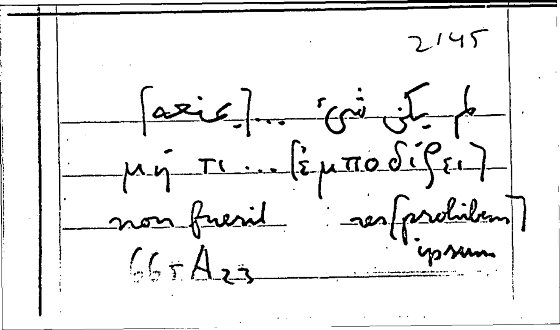 2145
لم يكن شيء ... [يمنعه]
μή τι ... [ἐμποδίζει]
non fuerit res [prohibens]
ipsum
66 5 A 23